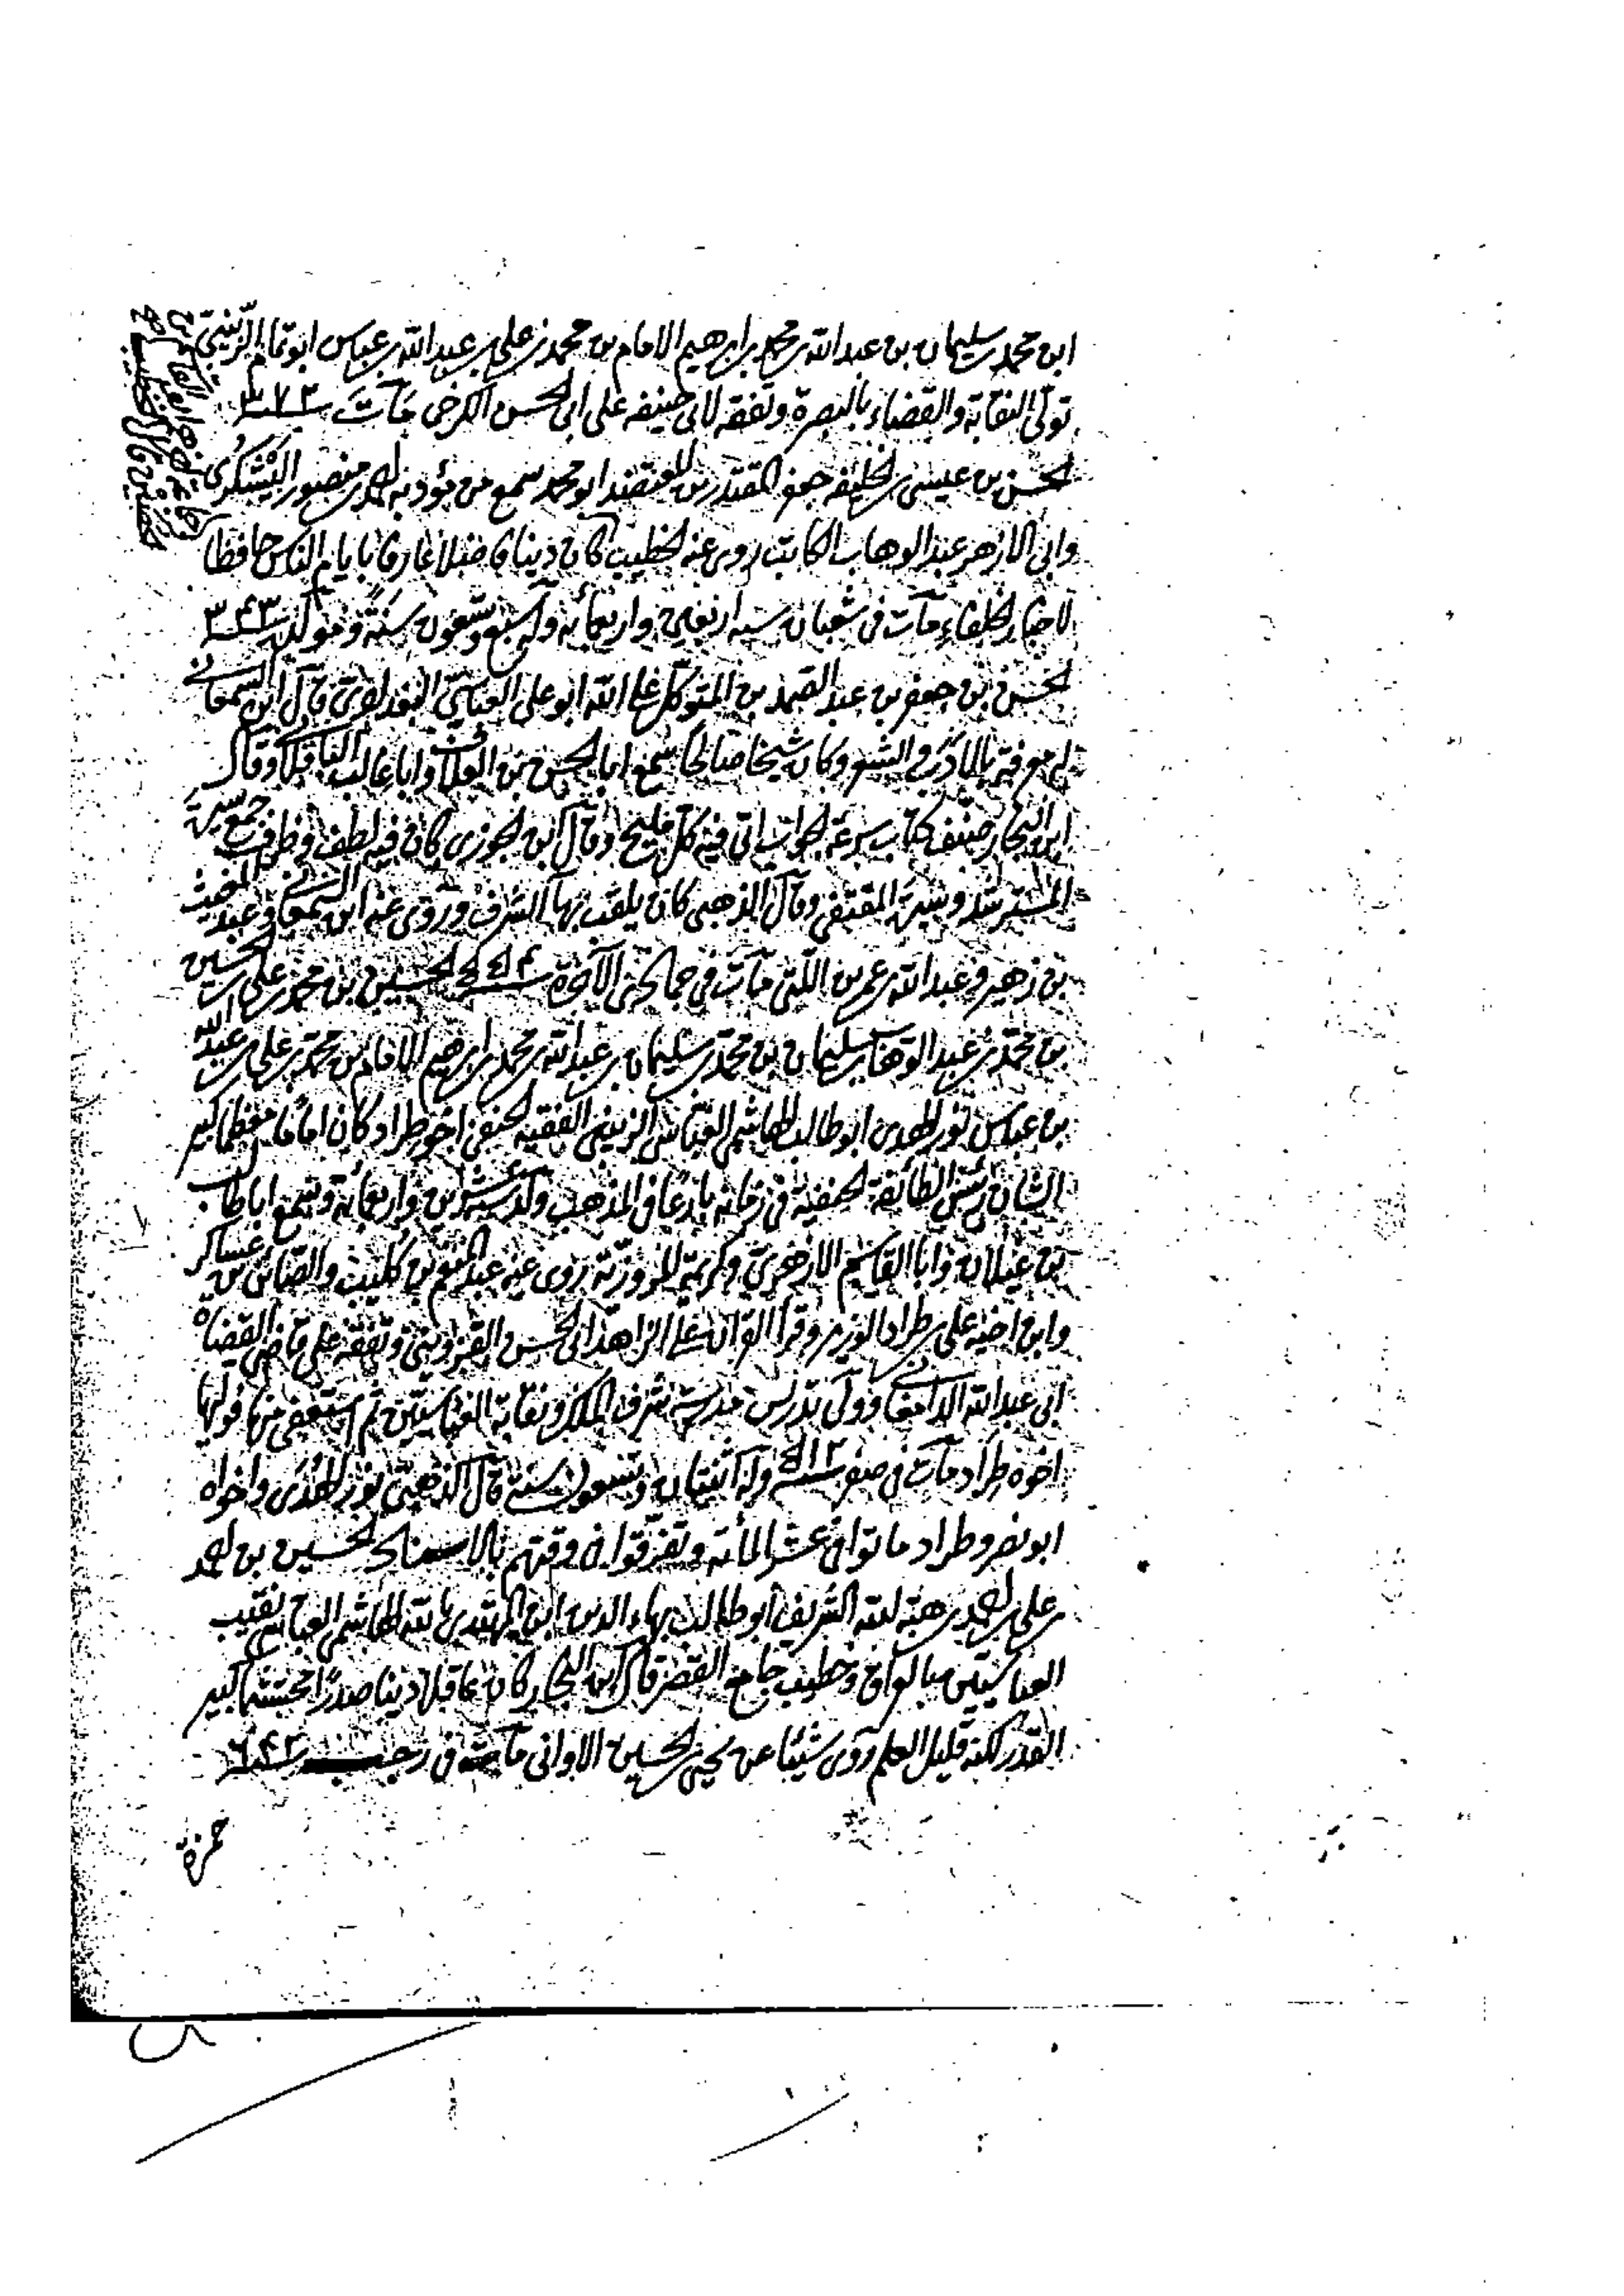 ابن محمد بن سليمان بن عبدالله بن محمد بن ابرهيم الامام بن محمد بن علي بن عبدالله بن عباس ابو تمام الزينبي
تولى النقابة والقضاء بالبصرة وتفقه لابي حنيفه على ابي الحسن الكرخي مات سنة ٣٧٢
الحسن بن عيسى بن الخليفه جعفر المقتدر بن المعتضد ابو محمد سمع من مؤدبه احمد بن منصور اليشكرى
وابي الازهر عبدالوهاب الكاتب روى عنه الخطيب كان دينا فاضلا عارفا بايام الناس حافظا
لاخبار الخلفاء مات في شعبان سنه اربعين واربعمائه وله سبع وتسعون سنة ومولده سنة ٣٤٣
الحسن بن جعفر بن عبد الصمد بن المتوكل على الله ابو علي العباسي البغدادي قال ابن السمعاني
له معرفة بالادب والشعر وكان شيخا صالحا سمع ابا الحسن بن العلاف وابا غالب الباقلاني وقال
ابن النجار صنف كتاب سرعة الجواب اتى فيه كل مليح وقال ابن الجوزى كان فيه لطف وظرف جمع سيرة
المسترشد وسيرة المقتفي وقال الذهبي كان يلقب بهاء الشرف وروى عنه ابن السمعاني وعبد المغيث
بن زهير وعبدالله بن عمر بن اللتي مات في جمادى الآخرة سنة ٥٥٤ الحسين بن محمد بن علي بن الحسين
بن محمد بن عبد الوهاب بن سليمان بن محمد بن سليمان بن عبدالله بن محمد بن ابرهيم الامام بن محمد بن علي بن عبد الله
بن عباس نور الهدى ابو طالب الهاشمي العباسي الزينبي الفقيه الحنفي اخو طراد كان اماما معظما كبير
الشان رئيس الطائفة الحنفية في زمانه بارعا في المذهب ولد سنة عشرين واربعمائة وسمع اباطالب
بن غيلان وابا القاسم الازهري وكريمة المروزية روى عنه عبد المنعم بن كليب والصائن بن عساكر
وابن اخيه علي بن طراد الوزير وقرأ القرآن على الزاهد ابي الحسن القزويني وتفقه على قاضي القضاه
ابي عبدالله الدامغاني وولى تدريس مدرسة شرف الملك ونقابة العباسيين ثم استعفى منها فوليها
اخوه طراد مات في صفر سنة ٥١٢ وله اثنتان وتسعون سنة قال الذهبي نور الهدى واخواه
ابو نصر وطراد ماتوا في عشر المائة وتفرقوا في وقتهم بالاسناد الحسين بن احمد
علي بن احمد بن هبة الله الشريف ابو طالب بهاء الدين ابن المهتدي بالله الهاشمي العباسي نقيب
العباسيين بالعراق وخطيب جامع القصر قال ابن النجار كان عاقلا دينا صدرا محتشما كبير
القدر لكنه قليل العلم روى شيئا عن يحيى بن الحسين الاواني مات في رجب سنة ٦٤٢
حمزة